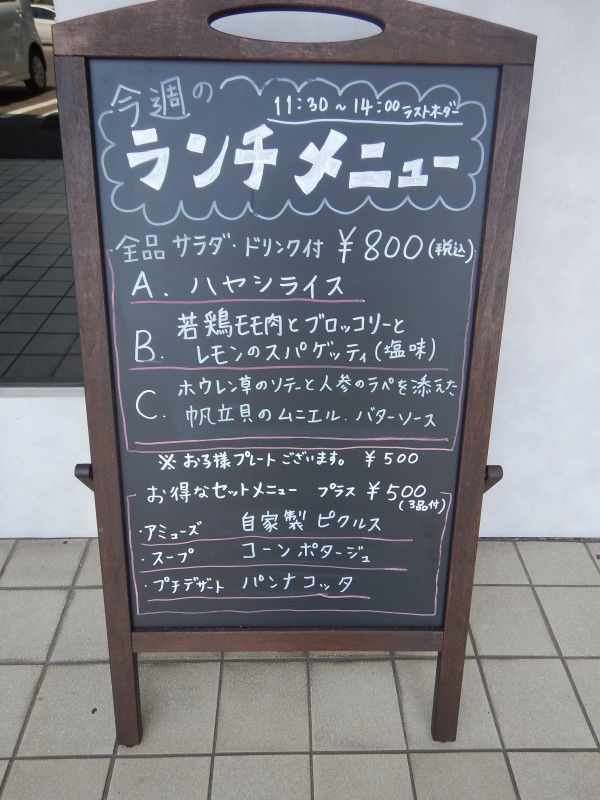 今週の
11:30～14:00ラストオーダー
ランチメニュー
全品 サラダ・ドリンク付 ¥800(税込)
A. ハヤシライス
B. 若鶏モモ肉とブロッコリーと
レモンのスパゲッティ(塩味)
C. ホウレン草のソテーと人参のラペを添えた
帆立貝のムニエル. バターソース
※ お子様プレートございます。 ¥500
お得なセットメニュー プラス ¥500
(3品付)
・アミューズ 自家製ピクルス
・スープ コーンポタージュ
・プチデザート パンナコッタ